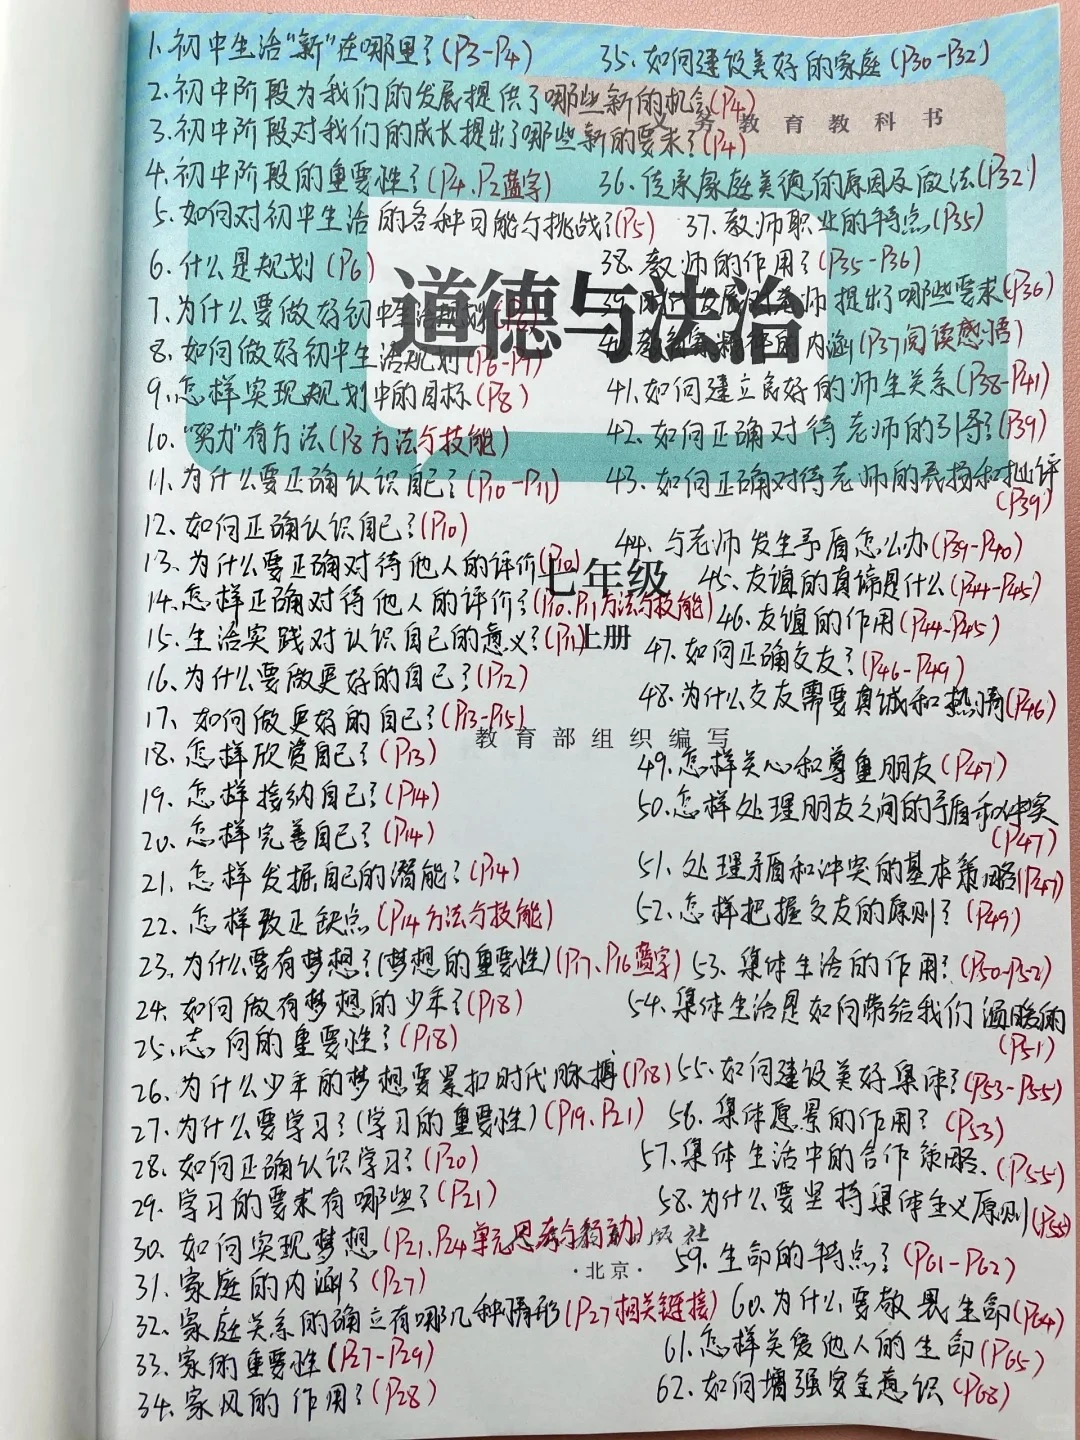 1.初中生活“新”在哪里?(P3-P4)
2.初中阶段为我们的发展提供了哪些新的机会(P4)
3.初中阶段对我们的成长提出了哪些新的要求?(P4)
4.初中阶段的重要性?(P4、P2蓝字)
5.如何对初中生活的各种可能与挑战?(P5)
6.什么是规划(P6)
7.为什么要做好初中生活规划
8.如何做好初中生活规划(P6-P7)
9.怎样实现规划中的目标(P8)
10.“努力”有方法(P8方法与技能)
11.为什么要正确认识自己?(P10-P11)
12、如何正确认识自己?(P10)
13.为什么要正确对待他人的评价(P10)
14.怎样正确对待他人的评价?(P10、P11方法与技能)
15.生活实践对认识自己的意义?(P11)
16、为什么要做更好的自己?(P12)
17、如何做更好的自己?(P13-P15)
18.怎样欣赏自己?(P13)
19、怎样接纳自己?(P14)
20、怎样完善自己?(P14)
21、怎样发掘自己的潜能?(P14)
22、怎样改正缺点(P14方法与技能)
23.为什么要有梦想?(梦想的重要性)(P17、P16蓝字)
24.如何做有梦想的少年?(P18)
25.志向的重要性?(P18)
26.为什么少年的梦想要紧扣时代脉搏(P18)
27.为什么要学习?(学习的重要性)(P19、P21)
28.如何正确认识学习?(P20)
29.学习的要求有哪些?(P21)
30.如何实现梦想(P21、P24单元思考与行动)
31.家庭的内涵?(P27)
32、家庭关系的确立有哪几种情形(P27相关链接)
33、家的重要性(P27-P29)
34、家风的作用?(P28)
35.如何建设美好的家庭(P30-P32)
36、传承家庭美德的原因及做法(P32)
37.教师职业的特点(P35)
38.教师的作用?(P35-P36)
师提出了哪些要求(P36)
内涵(P37阅读感悟)
41.如何建立良好的师生关系(P38-P41)
42.如何正确对待老师的引导?(P39)
43、如何正确对待老师的表扬和批评
(P39)
44、与老师发生矛盾怎么办(P39-P40)
45、友谊的真谛是什么(P44-P45)
46、友谊的作用(P44-P45)
47.如何正确交友?(P46-P49)
48.为什么交友需要真诚和热情(P46)
49.怎样关心和尊重朋友(P47)
50.怎样处理朋友之间的矛盾和冲突
(P47)
51、处理矛盾和冲突的基本策略(P47)
52.怎样把握交友的原则?(P49)
53.集体生活的作用?(P50-P52)
54.集体生活是如何带给我们温暖的
(P51)
55.如何建设美好集体?(P53-P55)
56.集体愿景的作用?(P53)
57.集体生活中的合作策略、(P55)
58.为什么要坚持集体主义原则(P55)
59、生命的特点?(P61-P62)
60.为什么要敬畏生命(P64)
61.怎样关爱他人的生命(P65)
62、如何增强安全意识(P68)
义务教育教科书
道德与法治
七年级
上册
教育部组织编写
版社
·北京·